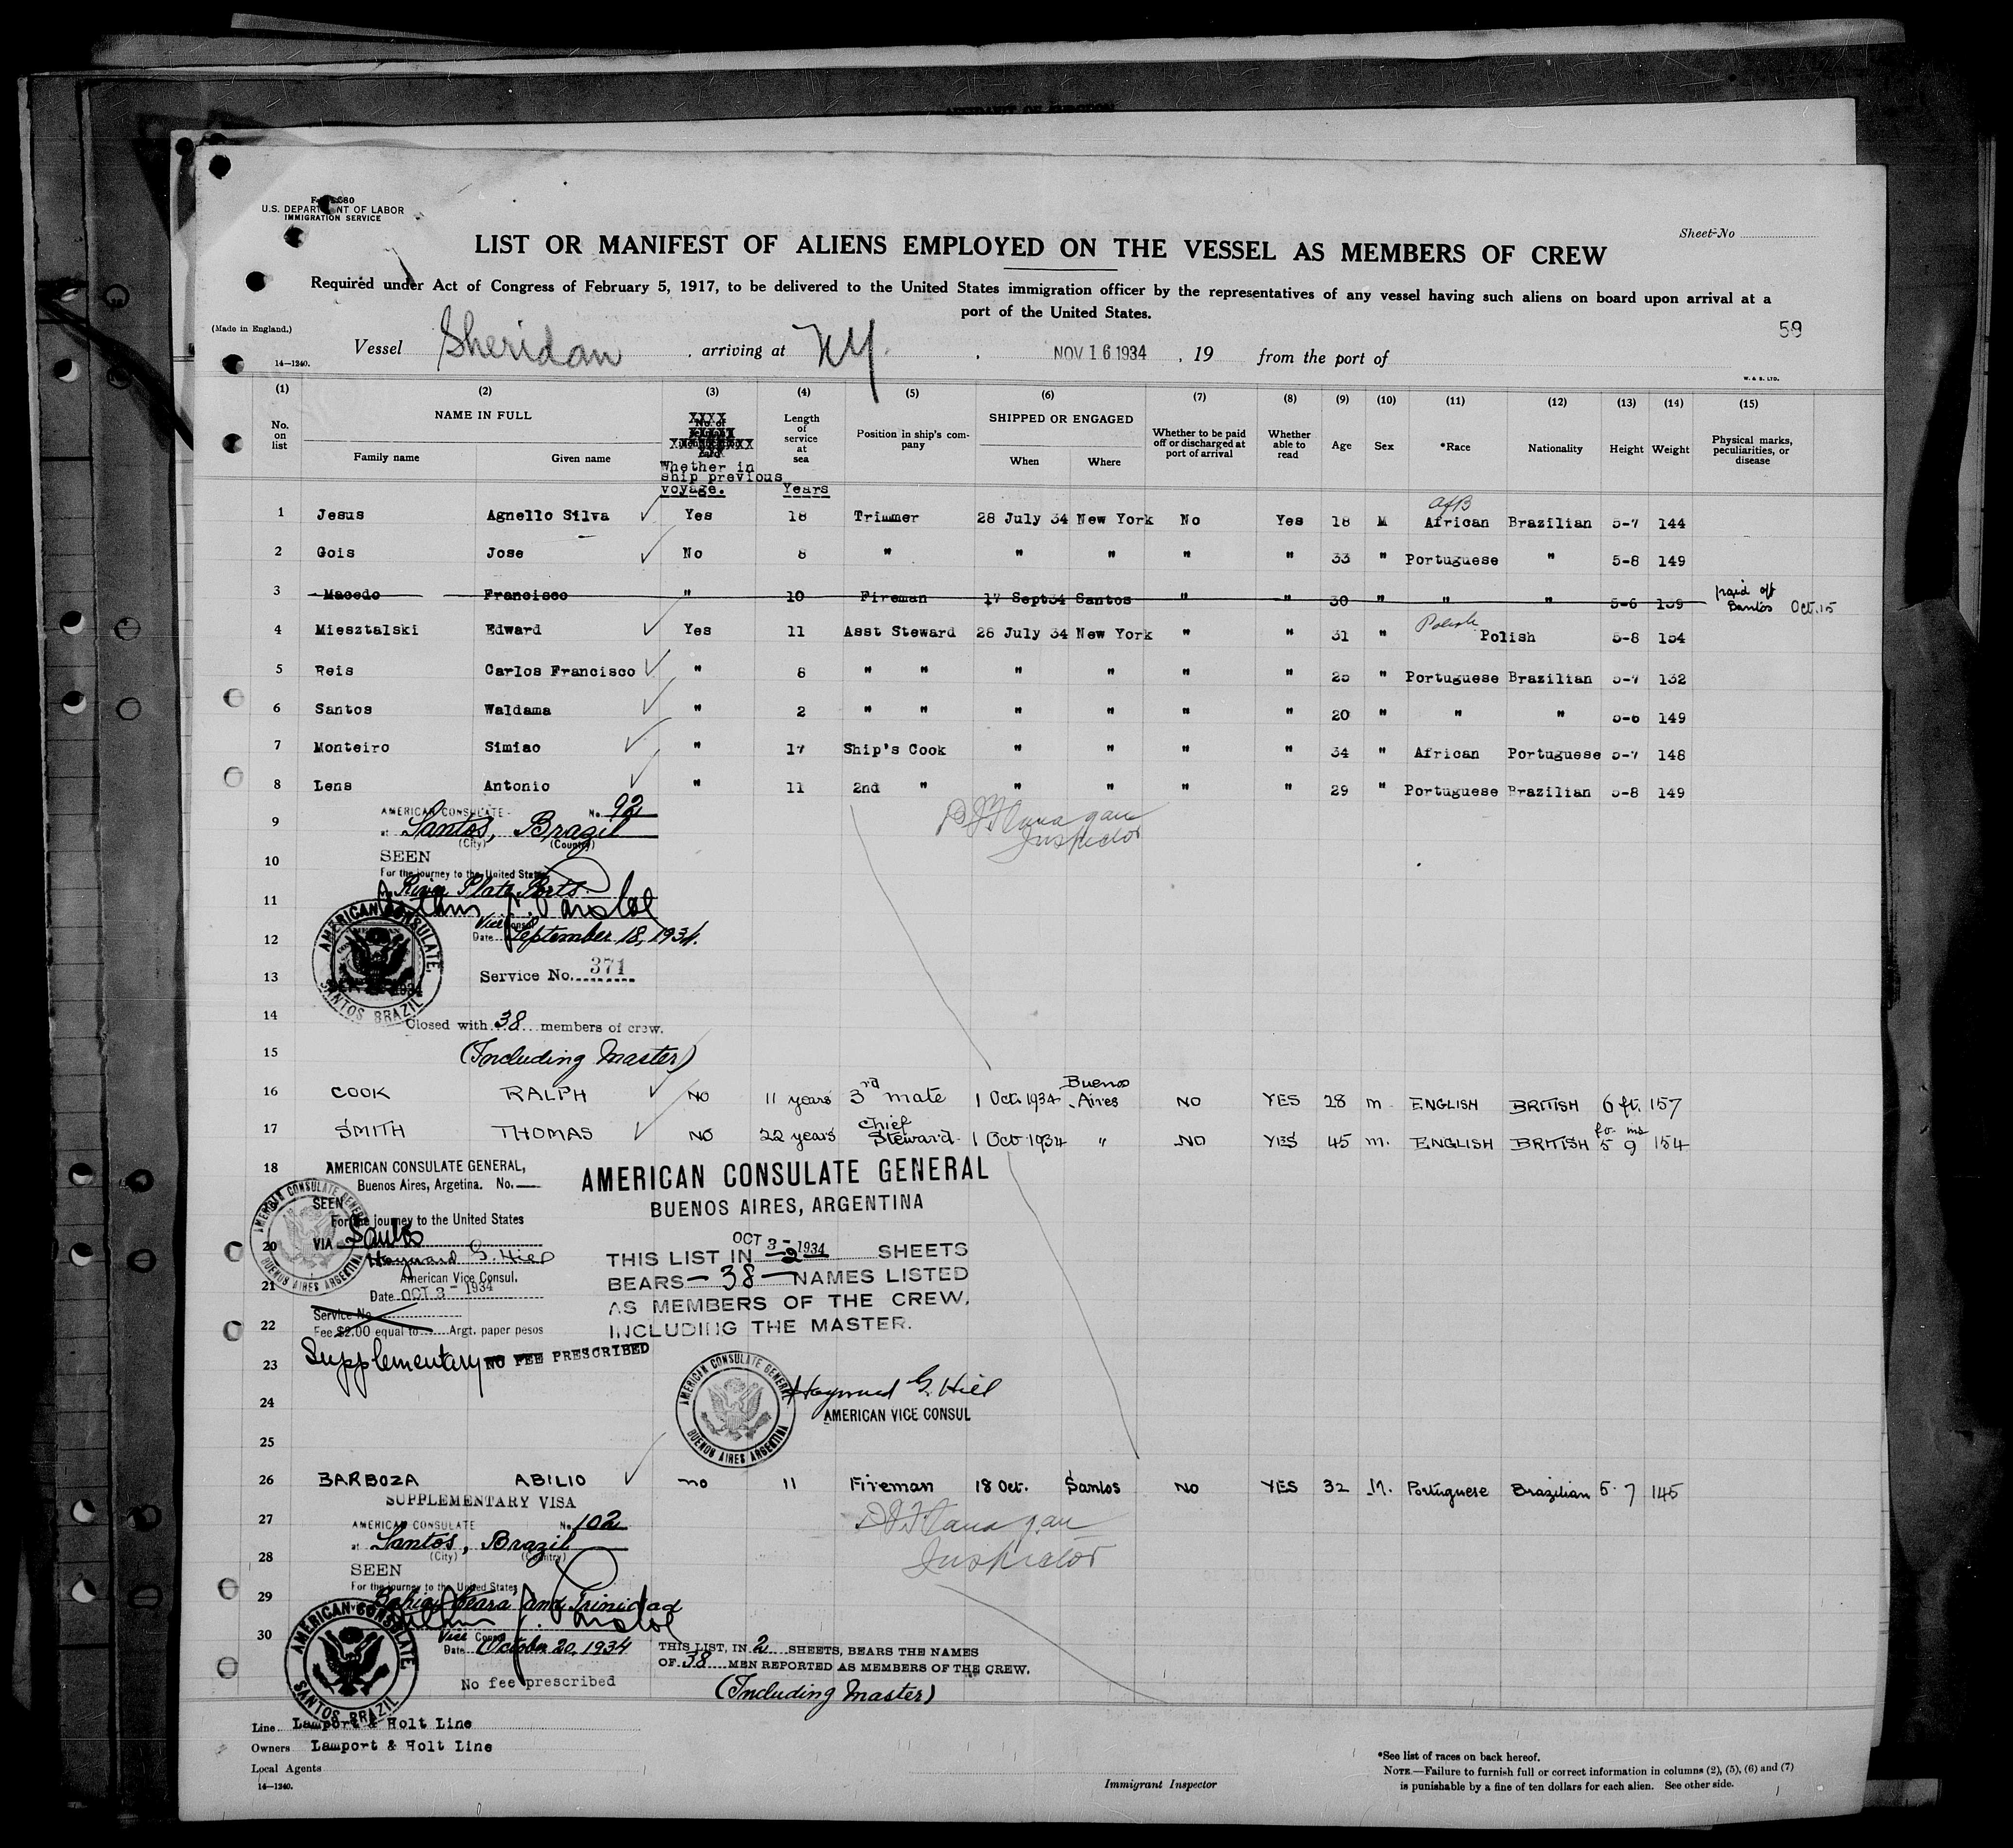 AFFIDAVIT OF SURGEON
U.S. DEPARTMENT OF LABOR
IMMIGRATION SERVICE
Sheet No
LIST OR MANIFEST OF ALIENS EMPLOYED ON THE VESSEL AS MEMBERS OF CREW
Required under Act of Congress of February 5, 1917, to be delivered to the United States immigration officer by the representatives of any vessel having such aliens on board upon arrival at a
port of the United States.
(Made in England.)
59
14—1240.
Vessel Sheridan , arriving at NY. , NOV 16 1934 , 19 from the port of
W. & S. LTD.
(1) (2) (3) (4) (5) (6) (7) (8) (9) (10) (11) (12) (13) (14) (15)
No. on list NAME IN FULL Family name Given name Whether in ship previous voyage. Length of service at sea Years Position in ship's company SHIPPED OR ENGAGED When Where Whether to be paid off or discharged at port of arrival Whether able to read Age Sex *Race Nationality Height Weight Physical marks, peculiarities, or disease
AfB
1 Jesus Agnello Silva Yes 18 Trimmer 28 July 34 New York No Yes 18 M African Brazilian 5-7 144
2 Gois Jose No 8 " " " " " 33 " Portuguese " 5-8 149
3 Macedo Francisco " 10 Fireman 17 Sept34 Santos " " 30 " " " 5-6 139 paid off Santos Oct.15
4 Miesztalski Edward Yes 11 Asst Steward 28 July 34 New York " " 31 " Polish Polish 5-8 154
5 Reis Carlos Francisco " 8 " " " " " " 25 " Portuguese Brazilian 5-7 132
6 Santos Waldama " 2 " " " " " " 20 " " " 5-6 149
7 Monteiro Simiao " 17 Ship's Cook " " " " 34 " African Portuguese 5-7 148
8 Lens Antonio " 11 2nd " " " " " 29 " Portuguese Brazilian 5-8 149
AMERICAN CONSULATE No. 92
9 at Santos, Brazil
(City) (Country)
Flanagan
Inspector
10 SEEN
For the journey to the United States
River Plate Ports.
11
Vice Consul
12 Date September 18, 1934.
AMERICAN CONSULATE. SANTOS BRAZIL
13 Service No. 371
14 Closed with 38 members of crew.
15 (Including Master)
16 COOK RALPH NO 11 years 3rd mate 1 Oct. 1934 Buenos Aires NO YES 28 m. ENGLISH BRITISH 6 ft. 157
17 SMITH THOMAS NO 22 years Chief Steward. 1 Oct 1934 " NO YES 45 m. ENGLISH BRITISH 5 9 154
18 AMERICAN CONSULATE GENERAL,
Buenos Aires, Argetina. No.
AMERICAN CONSULATE GENERAL
BUENOS AIRES, ARGENTINA
SEEN
For the journey to the United States
20 VIA Santos
Hayward G. Hill
American Vice Consul.
21 Date OCT 3 - 1934
AMERICAN CONSULATE GENERAL BUENOS AIRES ARGENTINA
Service No.
22 Fee $2.00 equal to Argt. paper pesos
23 Supplementary NO FEE PRESCRIBED
OCT 3 - 1934
THIS LIST IN 2 SHEETS
BEARS — 38 — NAMES LISTED
AS MEMBERS OF THE CREW,
INCLUDING THE MASTER.
AMERICAN CONSULATE GENERAL BUENOS AIRES ARGENTINA
24 Hayward G. Hill
AMERICAN VICE CONSUL
25
26 BARBOZA ABILIO no 11 Fireman 18 Oct. Santos NO YES 32 M. Portuguese Brazilian 5.7 145
SUPPLEMENTARY VISA
27 AMERICAN CONSULATE No. 102
at Santos, Brazil
28 (City) (Country)
Flanagan
Inspector
SEEN
For the journey to the United States
29 Bahia, Ceara and Trinidad
Vice Consul
30 Date October 20, 1934
AMERICAN CONSULATE SANTOS BRAZIL
No fee prescribed
THIS LIST, IN 2 SHEETS, BEARS THE NAMES
OF 38 MEN REPORTED AS MEMBERS OF THE CREW.
(Including Master)
Line Lamport & Holt Line
Owners Lamport & Holt Line
Local Agents
14—1240.
Immigrant Inspector
*See list of races on back hereof.
NOTE.—Failure to furnish full or correct information in columns (2), (5), (6) and (7)
is punishable by a fine of ten dollars for each alien. See other side.